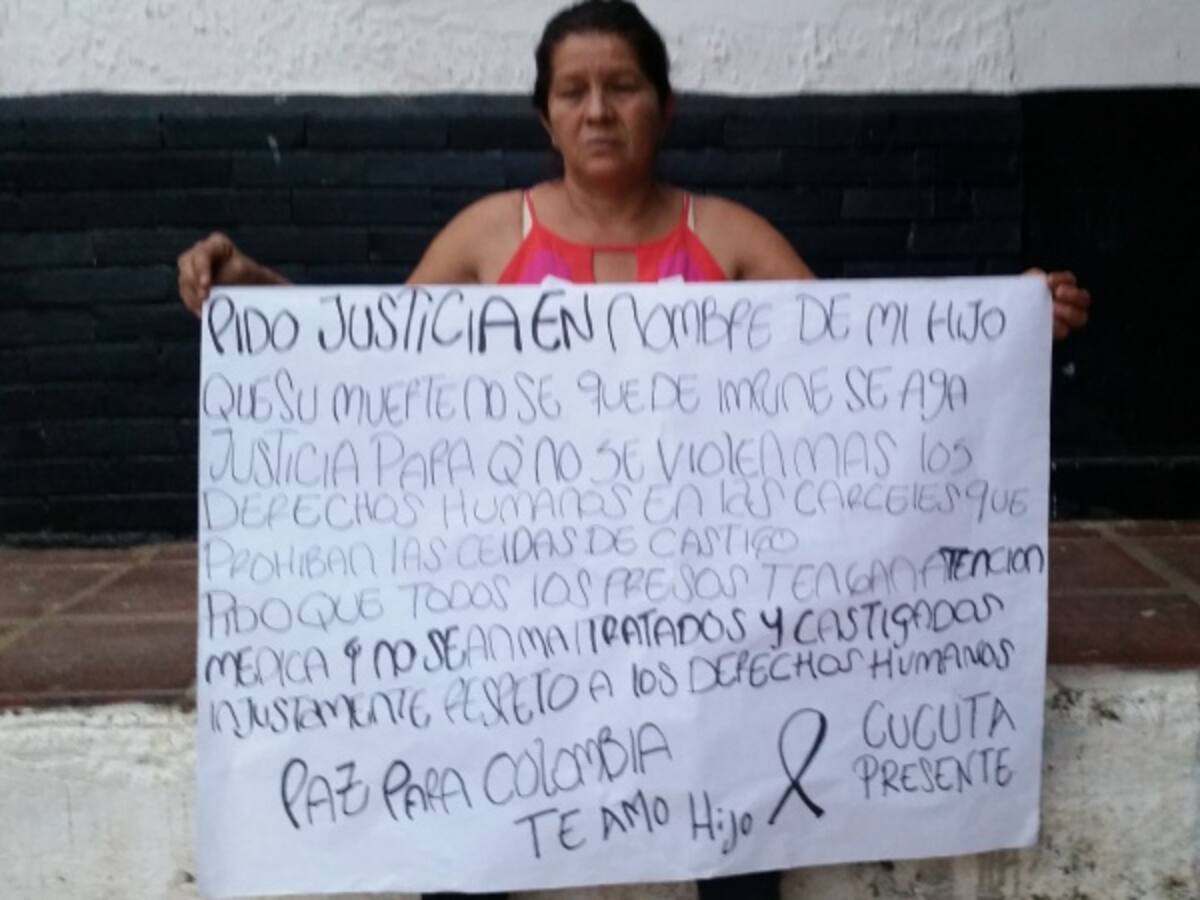 PIDO JUSTICIA EN NOMBRE DE MI HIJO
QUE SU MUERTE NO SE QUEDE IMPUNE SE AGA
JUSTICIA PARA Q' NO SE VIOLEN MAS LOS
DERECHOS HUMANOS EN LAS CARCELES QUE
PROHIBAN LAS CELDAS DE CASTIGO
PIDO QUE TODOS LOS PRESOS TENGAN ATENCION
MEDICA Y NO SEAN MALTRATADOS Y CASTIGADOS
INJUSTAMENTE RESPETO A LOS DERECHOS HUMANOS
PAZ PARA COLOMBIA
TE AMO Hijo
CUCUTA
PRESENTE